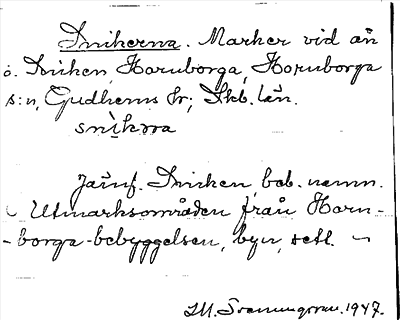 Snikerna. Marker vid ån
o. Sniken, Hornborga, Hornborga
s:n, Gudhems hr; Skb. län.
snìkɔra
Jämf. Sniken, beb. namn.
Utmarksområden från Horn-
-borga-bebyggelsen, byn, sedl.
1947.